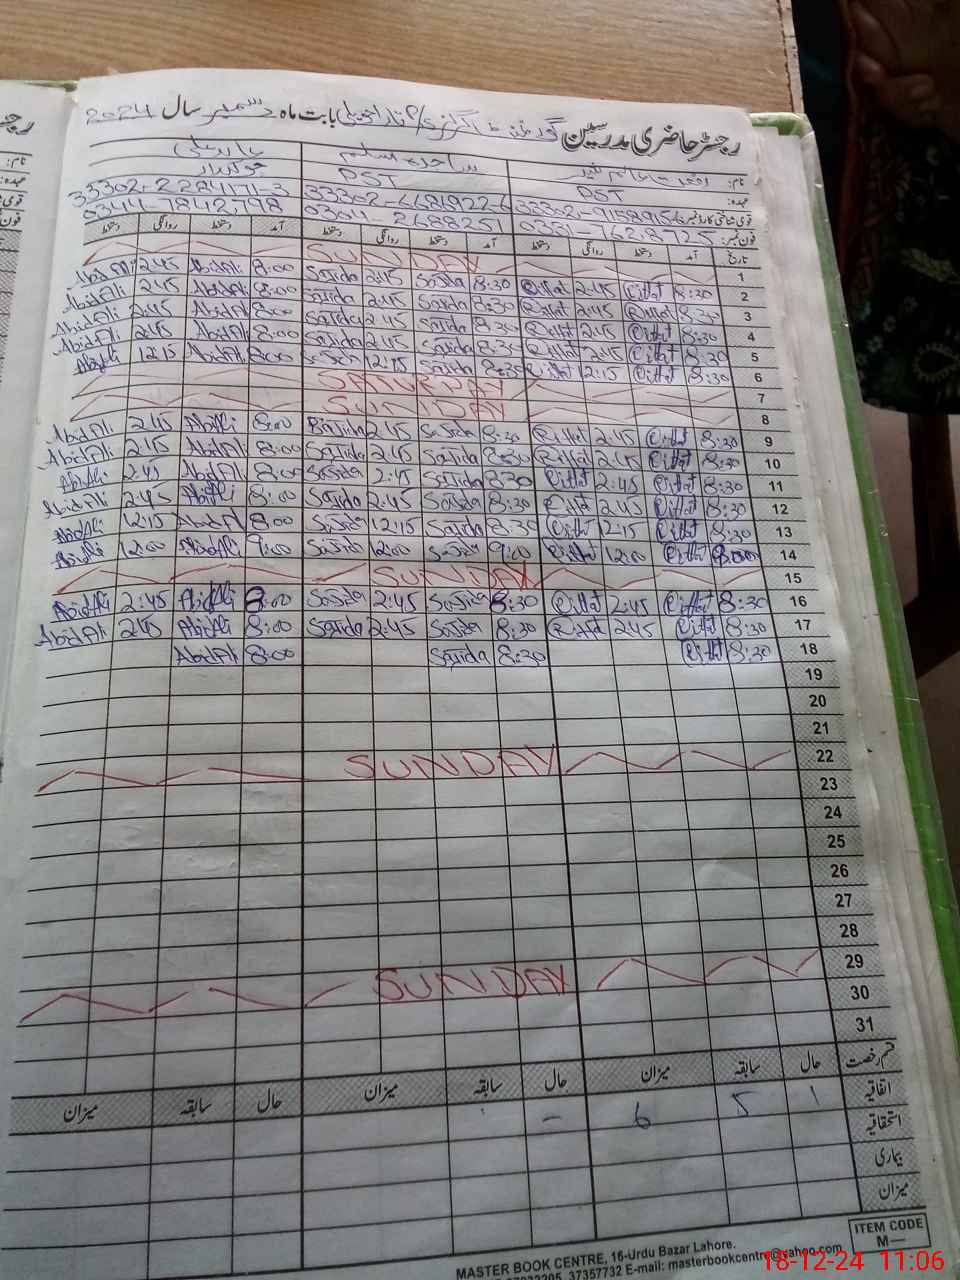 رجسٹر حاضری مدرسین بابت ماہ دسمبر سال 2024
نام:
عہدہ: PST PST چوکیدار
قومی شناختی کارڈ نمبر: 33302-6681922-6 33302-2284171-3
فون نمبر: 0331-76218725 0304-2688251 0344-7842798
تاریخ آمد دستخط روانگی دستخط آمد دستخط روانگی دستخط آمد دستخط روانگی دستخط
1 SUNDAY
2 8:30 Riffat 2:45 Riffat 8:30 Sajida 2:45 Sajida 8:00 Abid Ali 2:45 Abid Ali
3 8:30 Riffat 2:45 Riffat 8:30 Sajida 2:45 Sajida 8:00 Abid Ali 2:45 Abid Ali
4 8:30 Riffat 2:45 Riffat 8:30 Sajida 2:45 Sajida 8:00 Abid Ali 2:45 Abid Ali
5 8:30 Riffat 2:45 Riffat 8:30 Sajida 2:45 Sajida 8:00 Abid Ali 2:45 Abid Ali
6 8:30 Riffat 12:15 Riffat 8:30 Sajida 12:15 Sajida 8:00 Abid Ali 12:15 Abid Ali
7 SATURDAY
8 SUNDAY
9 8:30 Riffat 2:45 Riffat 8:30 Sajida 2:45 Sajida 8:00 Abid Ali 2:45 Abid Ali
10 8:30 Riffat 2:45 Riffat 8:30 Sajida 2:45 Sajida 8:00 Abid Ali 2:45 Abid Ali
11 8:30 Riffat 2:45 Riffat 8:30 Sajida 2:45 Sajida 8:00 Abid Ali 2:45 Abid Ali
12 8:30 Riffat 2:45 Riffat 8:30 Sajida 2:45 Sajida 8:00 Abid Ali 2:45 Abid Ali
13 8:30 Riffat 12:15 Riffat 8:30 Sajida 12:15 Sajida 8:00 Abid Ali 12:15 Abid Ali
14 Riffat 12:00 Riffat 9:00 Sajida 12:00 Sajida 9:00 Abid Ali 12:00 Abid Ali
15 SUNDAY
16 8:30 Riffat 2:45 Riffat 8:30 Sajida 2:45 Sajida 8:00 Abid Ali 2:45 Abid Ali
17 8:30 Riffat 2:45 Riffat 8:30 Sajida 2:45 Sajida 8:00 Abid Ali 2:45 Abid Ali
18 8:30 Riffat 8:30 Sajida 8:00 Abid Ali
19
20
21
22 SUNDAY
23
24
25
26
27
28
29 SUNDAY
30
31
قسم رخصت حال سابقہ میزان حال سابقہ میزان حال سابقہ میزان
اتفاقیہ 1 5 6
استحقاقیہ
بیماری
میزان
ITEM CODE
M—
MASTER BOOK CENTRE, 16-Urdu Bazar Lahore.
37357732 E-mail: masterbookcentre@yahoo.com
18-12-24 11:06